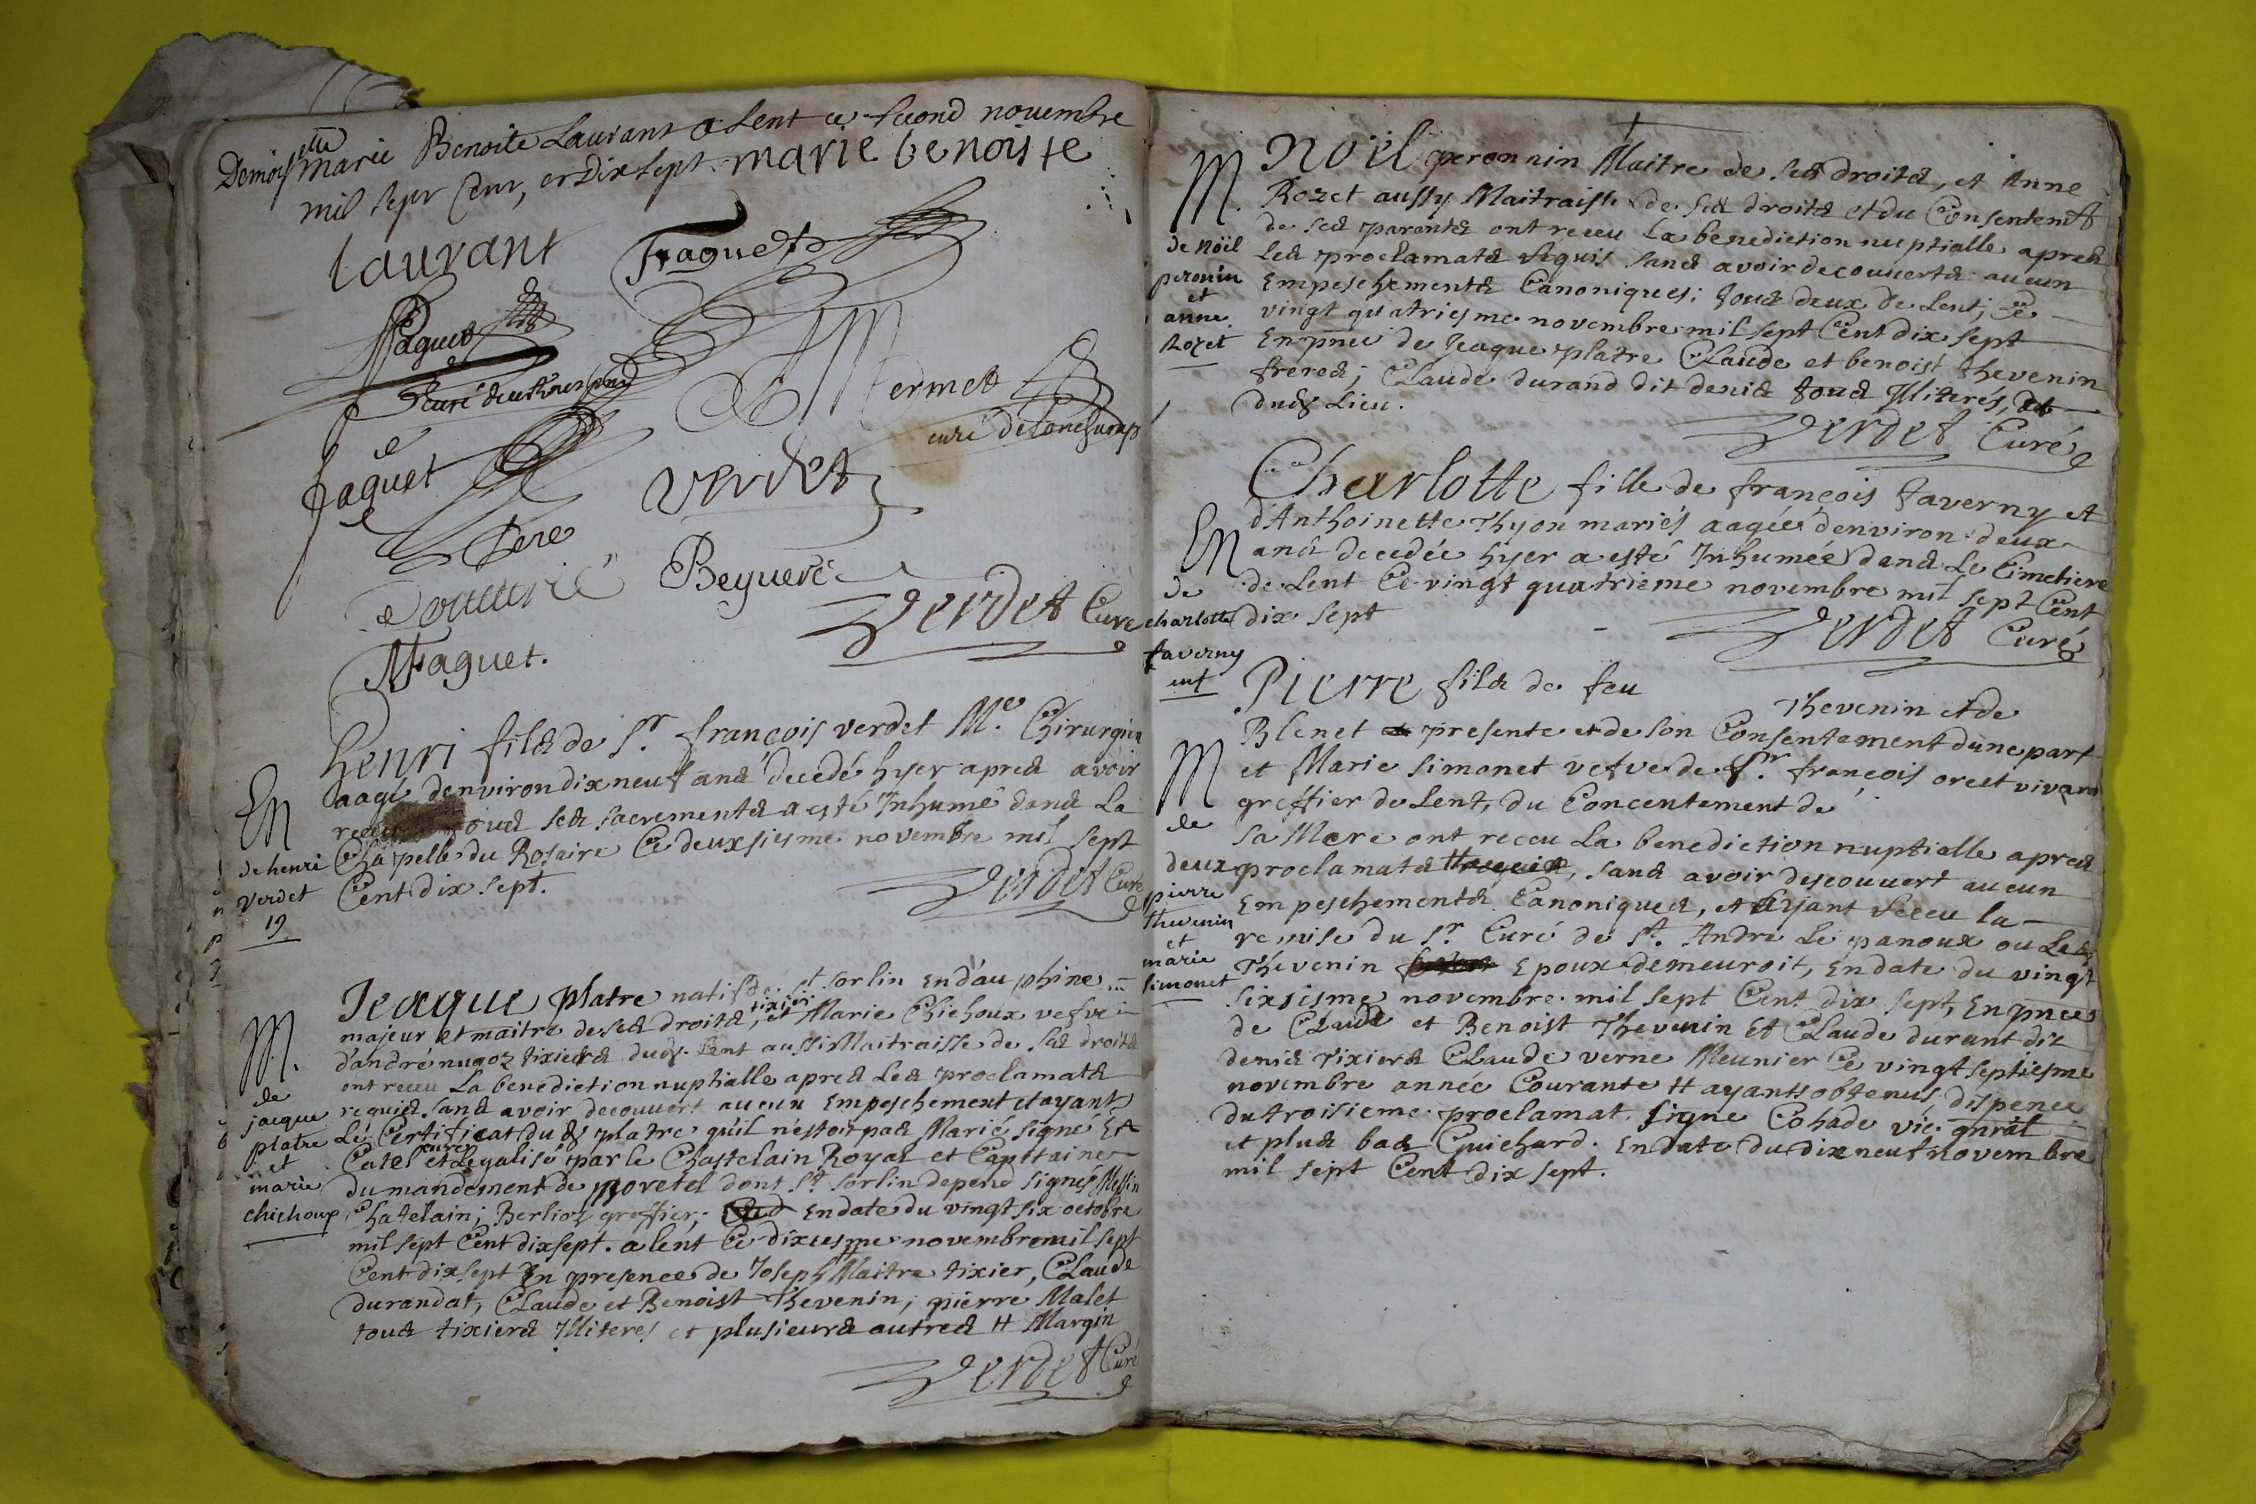 Demois.lle marie Benoite Laurant a Lent ce second novembre
mil sept Cent, et Dix sept. marie benoiste
laurant
Faguet
Paguet
Mermet
curé de Lonchamp
faguet
Verdet
Pere
Beguere
Verdet Curé
MFaguet.
En
de henri
verdet
19
henri fils de Sr. françois verdet Me. Chirurgien
aagé denviron dix neuf ans decedé hyer apres avoir
receu tous ses sacrements a esté Inhumé dans La
Chapelle du Rosaire Ce deuxsiesme novembre mil sept
Cent dix sept.
Verdet Curé
M.
de
jacque
platre
et
marie
chichoup
Jeaque platre natif de St sorlin en d'auphine
majeur et maitre de ses droits, tixier et Marie Chichoux vefve
d'andré nugoz tixiers dud. Lent aussi Maitraisse de ses droits
ont receu La benediction nuptialle apres Les proclamats
requis sans avoir decouvert aucun Empeschement et ayant
Le Certificat dud platre quil n'estoit pas Marié signé
Catel curé et Legalisé par le Chastelain Royal et Capittaine
du mandement de moretel dont St sorlin depend signés Messin
Chatelain; Berlioz greffier; En date du vingt six octobre
mil sept Cent dix sept. a lent Ce dixiesme novembre mil sept
Cent dix sept En presence de Joseph Maitre tixier, Claude
durandat, Claude et Benoist Thevenin, pierre Malet
tous tixiers Illiteres et plusieurs autres # Margin
Verdet Curé
M.
de Nöel
peronin
et
anne
Rozet
Nöel peronnin Maitre de ses droits, et Anne
Rozet aussy Maitraisse de ses droits et du Consentemt
de ses parents ont receu La benediction nuptialle apres
Les proclamats requis sans avoir decouverts aucun
Empeschements Canoniques; tous deux de Lent; Ce
vingt quatriesme novembre mil sept Cent dix sept
En pnce de Jeaque platre Claude et benoist thevenin
freres; Claude durand dit denis tous Illiteres,
dud Lieu.
Verdet Curé
En
de
charlotte
taverny
Charlotte fille de françois taverny et
d'Anthoinette Thyon mariés aagée denviron deux
ans decedée hyer a esté Inhumée dans Le Cimetiere
de Lent Ce vingt quatrieme novembre mil sept Cent
dix sept
Verdet Curé
M
de
deux
pierre
thevenin
et
marie
simonet
Pierre fils de feu Thevenin et de
Blenet presente et de son Consentement dune part
et Marie simonet vefve de Sr. françois orcet vivant
greffier de Lent, du Concentement de
sa Mere ont receu La benediction nuptialle apres
proclamats requis, sans avoir descouvert aucun
Empeschements Canoniques, et Ayant Receu la
remise du Sr. Curé de St. André Le panoux ou Led
Thevenin Epoux demeuroit, En date du vingt
sixsisme novembre mil sept Cent dix sept, En pnces
de Claude et Benoist Thevenin Et Claude durant dit
denis tixiers Claude verne Meunier Ce vingt septiesme
novembre année Courante # ayants obtenus dispence
du troisieme proclamat. signe Cohade vic. gnral
et plus bas Guichard. En date du dix neuf novembre
mil sept Cent dix sept.